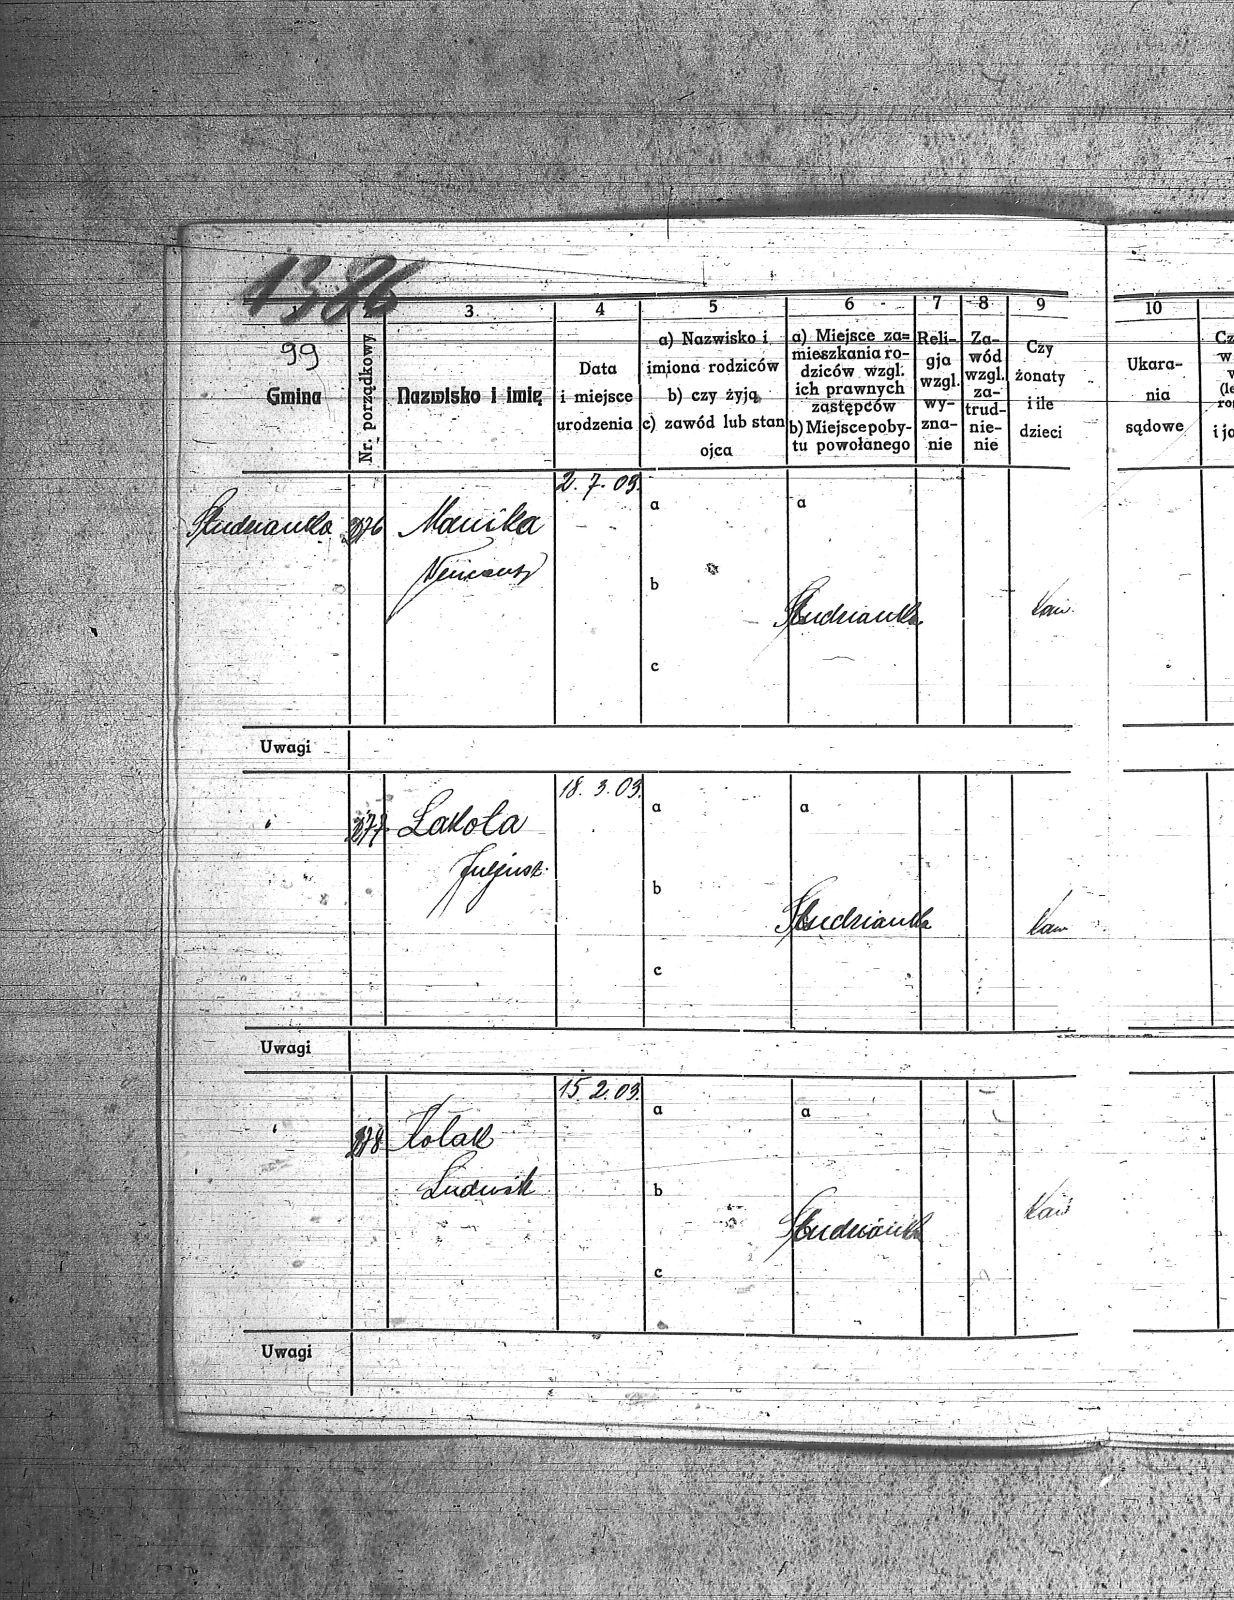 1386
99
Gmina
Nr. porządkowy
3
Nazwisko i imię
4
Data
i miejsce
urodzenia
5
a) Nazwisko i
imiona rodziców
b) czy żyją
c) zawód lub stan
ojca
6
a) Miejsce za=
mieszkania ro-
dziców wzgl.
ich prawnych
zastępców
b) Miejsce poby-
tu powołanego
7
Reli-
gja
wzgl.
wy-
zna-
nie
8
Za-
wód
wzgl.
za-
trud-
nie-
nie
9
Czy
żonaty
i ile
dzieci
10
Ukara-
nia
sądowe
Studzianka
Manika
2. 7. 03.
a
b
c
a
Studzianka
Kaw.
Uwagi
Lakota
Juljusz
18. 3. 03.
a
b
c
a
Studzianka
Kaw
Uwagi
Kołak
Ludwik
15. 2. 03.
a
b
c
a
Studzianka
Kaw
Uwagi